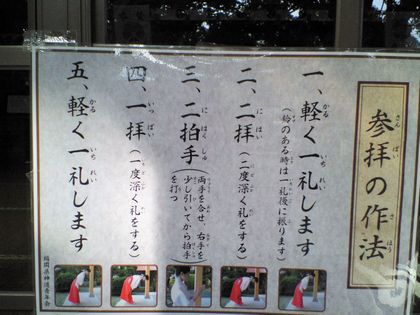 参拝の作法
一、軽く一礼します
(鈴のある時は一礼後に振ります)
二、二拝
(二度深く礼をする)
三、二拍手
(両手を合せ、右手を
少し引いてから拍手
を打つ)
四、一拝
(一度深く礼をする)
五、軽く一礼します
福岡県神道青年会